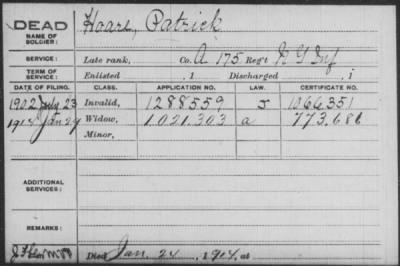 DEAD Hoare, Patrick
NAME OF SOLDIER:
SERVICE: Late rank, Co. A 175 Reg't N Y Inf
TERM OF SERVICE: Enlisted , 1 Discharged , 1
DATE OF FILING. CLASS. APPLICATION NO. LAW. CERTIFICATE NO.
1902 July 23 Invalid, 1288559 J 1066351
1914 Jan 29 Widow, 1.021.303 a 773,686
Minor,
ADDITIONAL SERVICES:
REMARKS:
Died Jan. 24, 1914, at